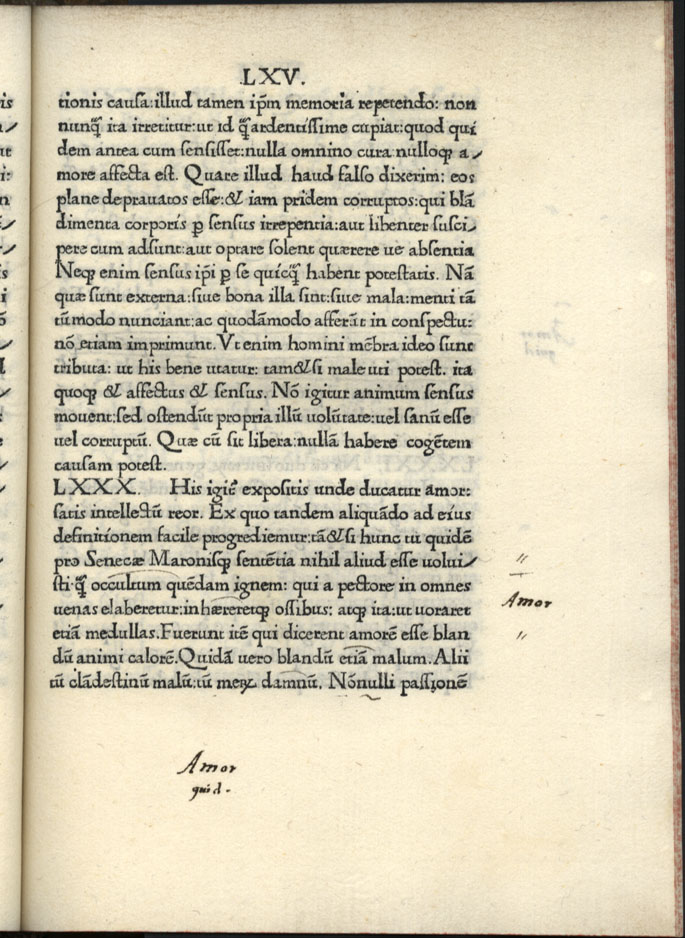 .LXV.
tionis causa:illud tamen ip̄m memoria repetendo: non
nunq̄ ita irretitur:ut id q̄ ardentissime cupiat:quod qui
dem antea cum sensisset:nulla omnino cura nulloqꝫ a⸗
more affecta est. Quare illud haud falso dixerim: eos
plane deprauatos esse:& iam pridem corruptos:qui blā
dimenta corporis ꝑ sensus irrepentia:aut libenter susci⸗
pere cum adsunt:aut optare solent quærere ue absentia
Neqꝫ enim sensus ip̄i ꝑ se quicq̄ habent potestatis. Nā
quæ sunt externa:siue bona illa sint:siue mala:menti tā
tūmodo nunciant:ac quodāmodo afferūt in conspectu:
nō etiam imprimunt. Vt enim homini mēbra ideo sunt
tributa: ut his bene utatur: tam&si male uti potest. ita
quoqꝫ & affectus & sensus. Nō igitur animum sensus
mouent:sed ostendūt propria illū volūtate:uel sanū esse
uel corruptū. Quæ cū sit libera:nullā habere cogētem
causam potest.
LXXX. His igit̄ expositis unde ducatur amor:
satis intellectū reor. Ex quo tandem aliquādo ad eius
definitionem facile progrediemur:tā&si hunc tu quidē
pro Senecæ Maronisqꝫ sentētia nihil aliud esse uolui⸗
sti:q̄ occultum quēdam ignem: qui a pectore in omnes
uenas elaberetur:inhæreretqꝫ ossibus: atqꝫ ita:ut uoraret
etiā medullas.Fuerunt itē qui dicerent amorē esse blan
dū animi calorē.Quidā uero blandū etiā malum. Alii
tū clādestinū malū:tū meꝝ damnū. Nōnulli passionē
"
Amor
"
Amor
quid.